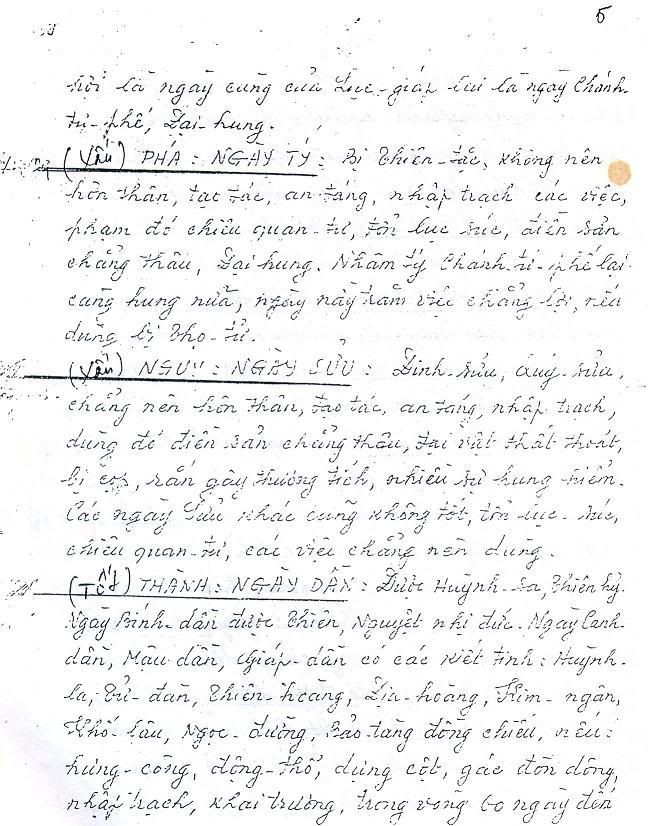 5
Hợi là ngày cùng của Lục-giáp lại là ngày Chánh
tứ-phế, Đại-hung.
(Xấu) PHÁ: NGÀY TÝ: Bị Thiên-tặc, không nên
hôn thân, tạo tác, an táng, nhập trạch các việc,
phạm đó chiêu quan-tư, tổn lục súc, điền sản
chẳng thâu, Đại hung. Nhâm Tý Chánh-tứ-phế lại
càng hung nữa, ngày này trăm việc chẳng lợi, nếu
dùng bị Thọ-tử.
(Xấu) NGUY: NGÀY SỬU: Đinh-sửu, Quý-sửu,
chẳng nên hôn thân, tạo tác, an táng, nhập trạch,
dùng đó điền sản chẳng thâu, tài vật thất thoát,
bị cọp, rắn gây thương tích, nhiều sự hung hiểm.
Các ngày Sửu khác cũng không tốt, tổn lục-súc,
chiêu quan-tư, các việc chẳng nên dùng.
(Tốt) THÀNH: NGÀY DẦN: Được Huỳnh-sa, Thiên hỷ.
Ngày Bính-dần được Thiên, Nguyệt nhị đức. Ngày Canh-
dần, Mậu dần, Giáp-dần có các kiết tinh: Huỳnh-
la, Tử-đàn, Thiên-hoàng, Địa-hoàng, Kim-ngân,
Khố-lâu, Ngọc-đường, Bảo-tàng đồng chiếu, nếu:
hưng-công, động-thổ, dựng cột, gác đòn dông,
nhập trạch, khai trương, trong vòng 60 ngày đến